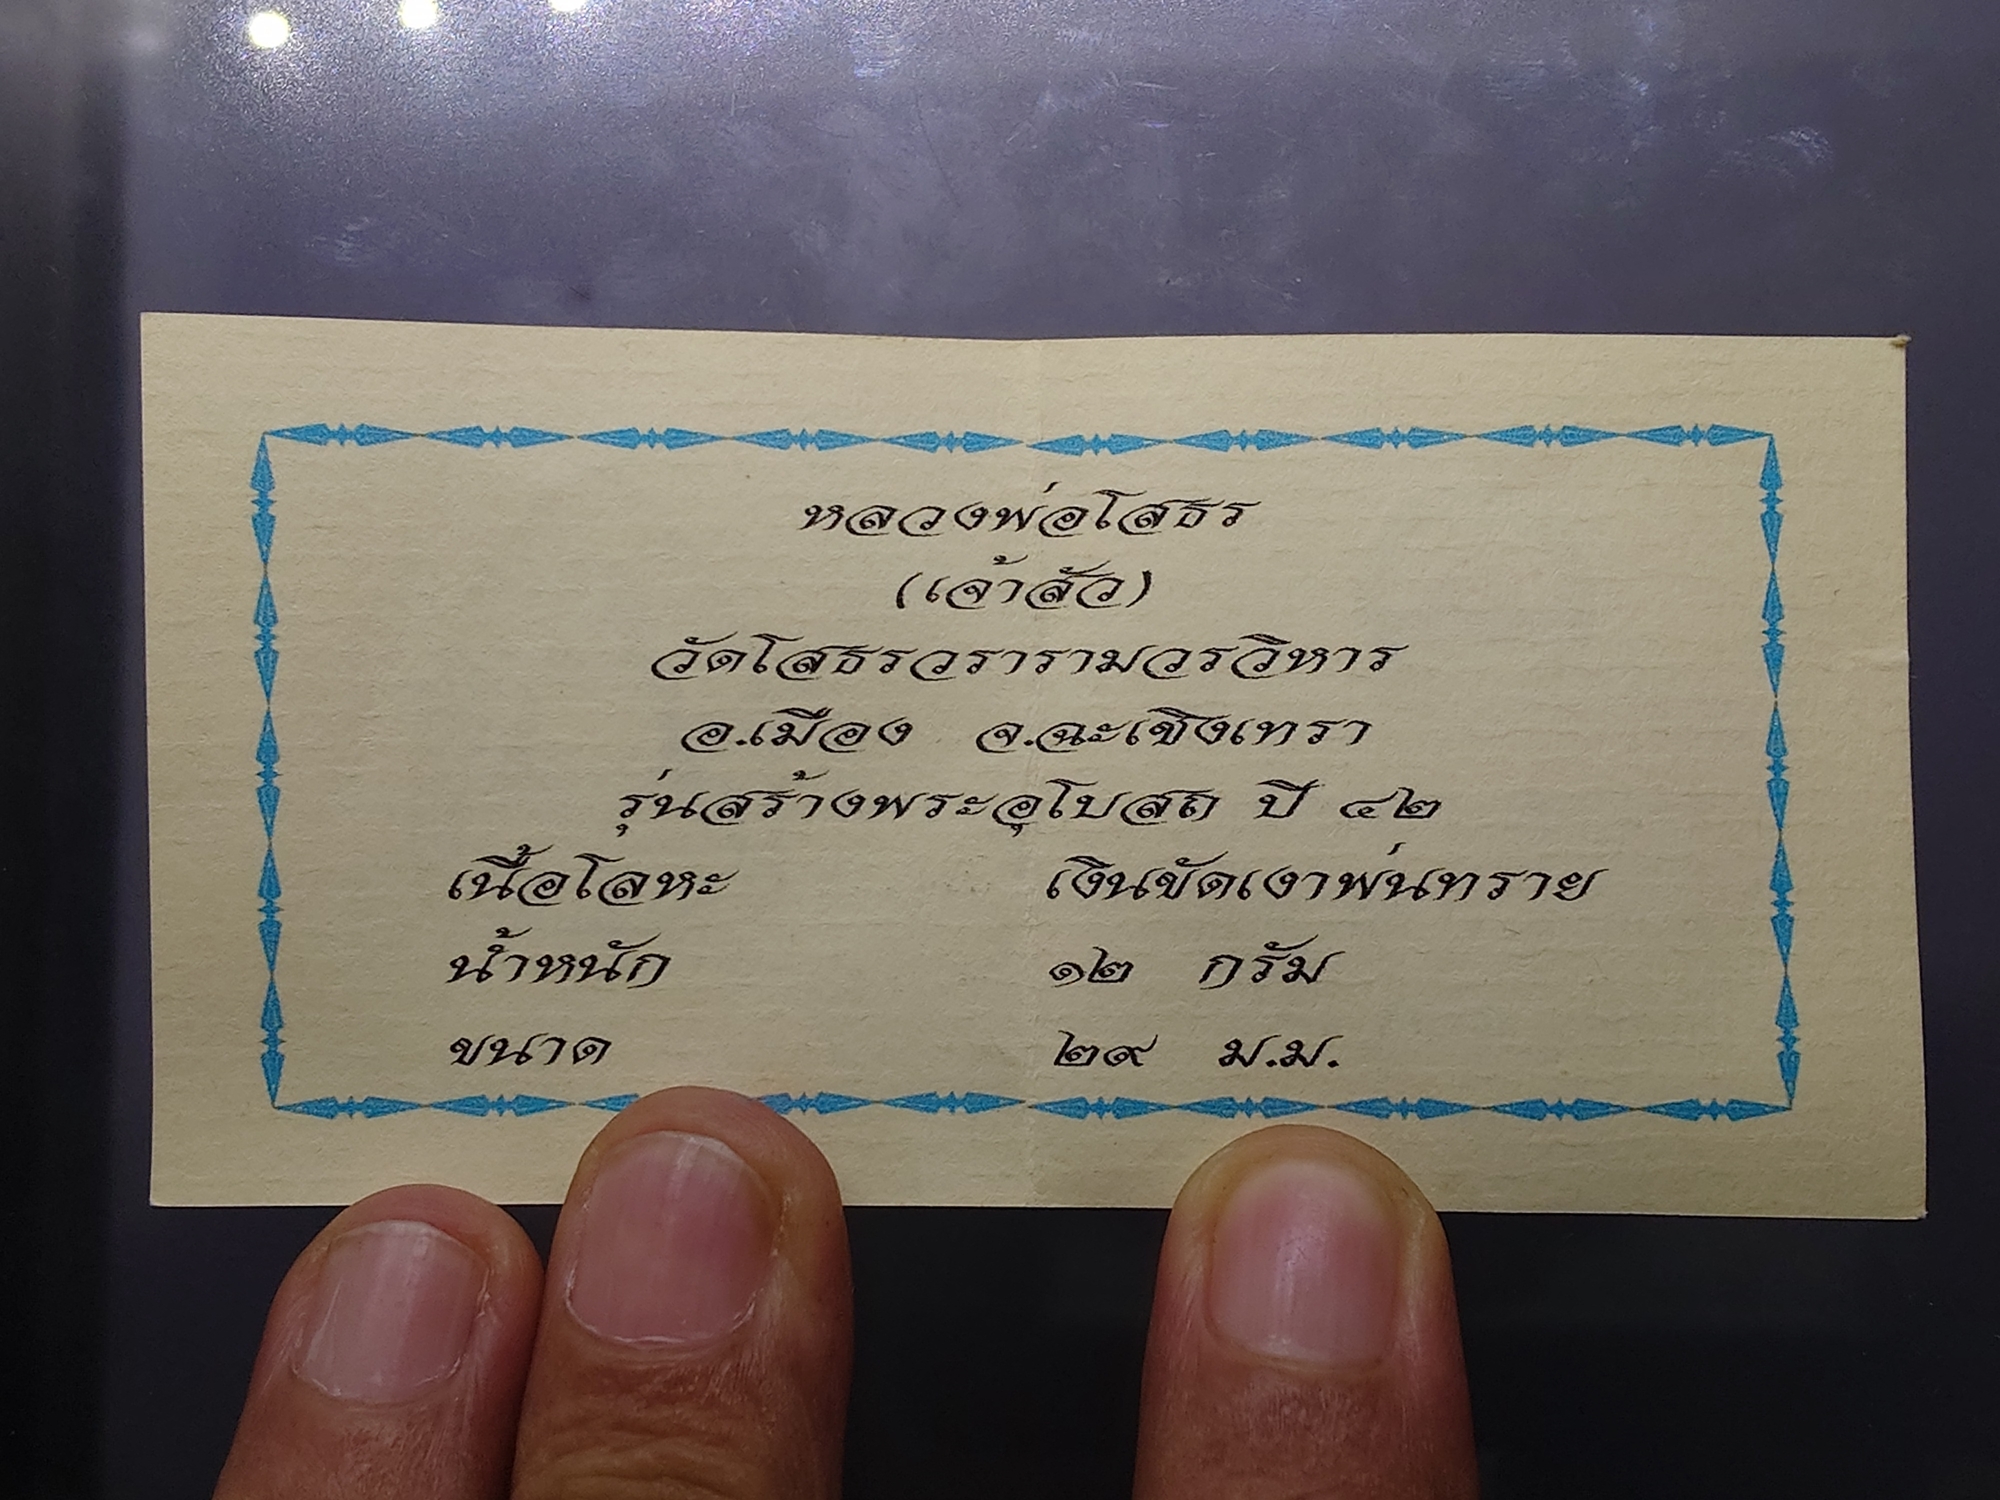 หลวงพ่อโสธร
(เจ้าสัว)
วัดโสธรวรารามวรวิหาร
อ.เมือง จ.ฉะเชิงเทรา
รุ่นสร้างพระอุโบสถ ปี ๔๒
เนื้อโลหะ เงินขัดเงาพ่นทราย
น้ำหนัก ๑๒ กรัม
ขนาด ๒๙ ม.ม.